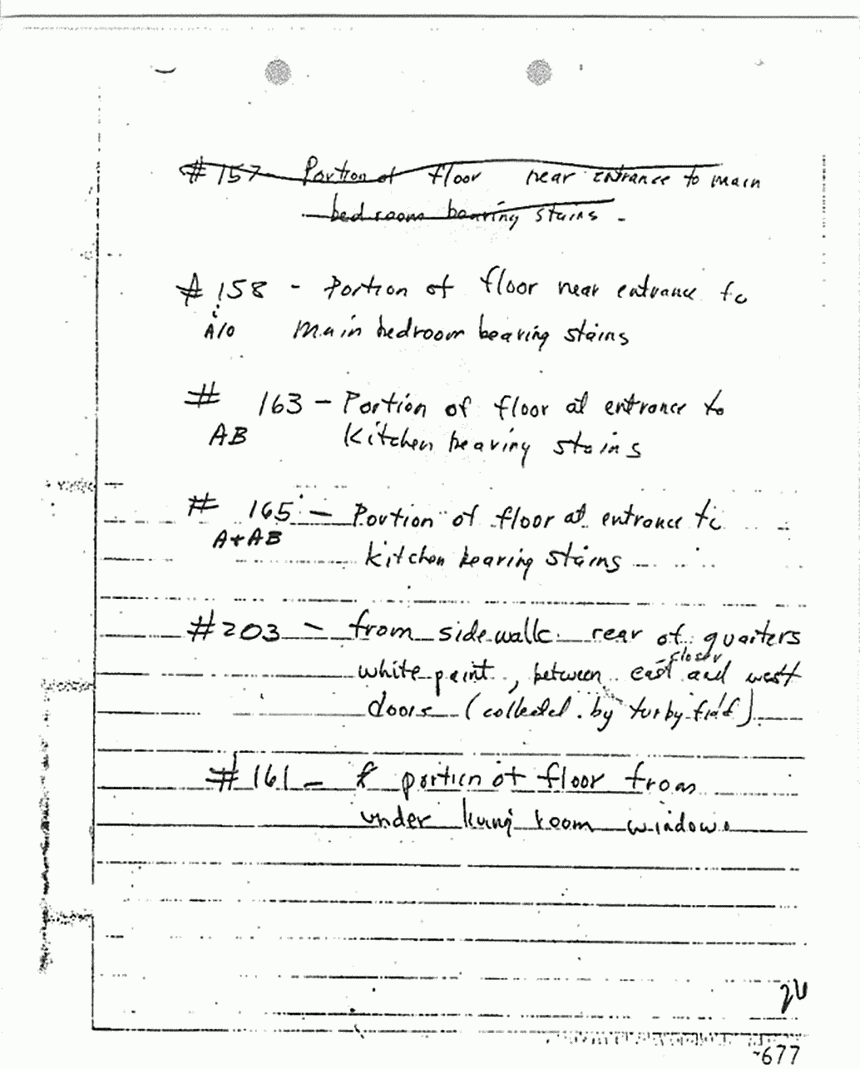 # 157 Portion of floor near entrance to main
bedroom bearing stains -
# 158 - Portion of floor near entrance to
A/O main bedroom bearing stains
# 163 - Portion of floor at entrance to
AB Kitchen bearing stains
# 165 - Portion of floor at entrance to
A + AB kitchen bearing stains
#203 - from sidewalk rear of quarters
closer
white paint, between east and west
doors (collected by turbyfill)
#161 - portion of floor from
under living room window.
-677